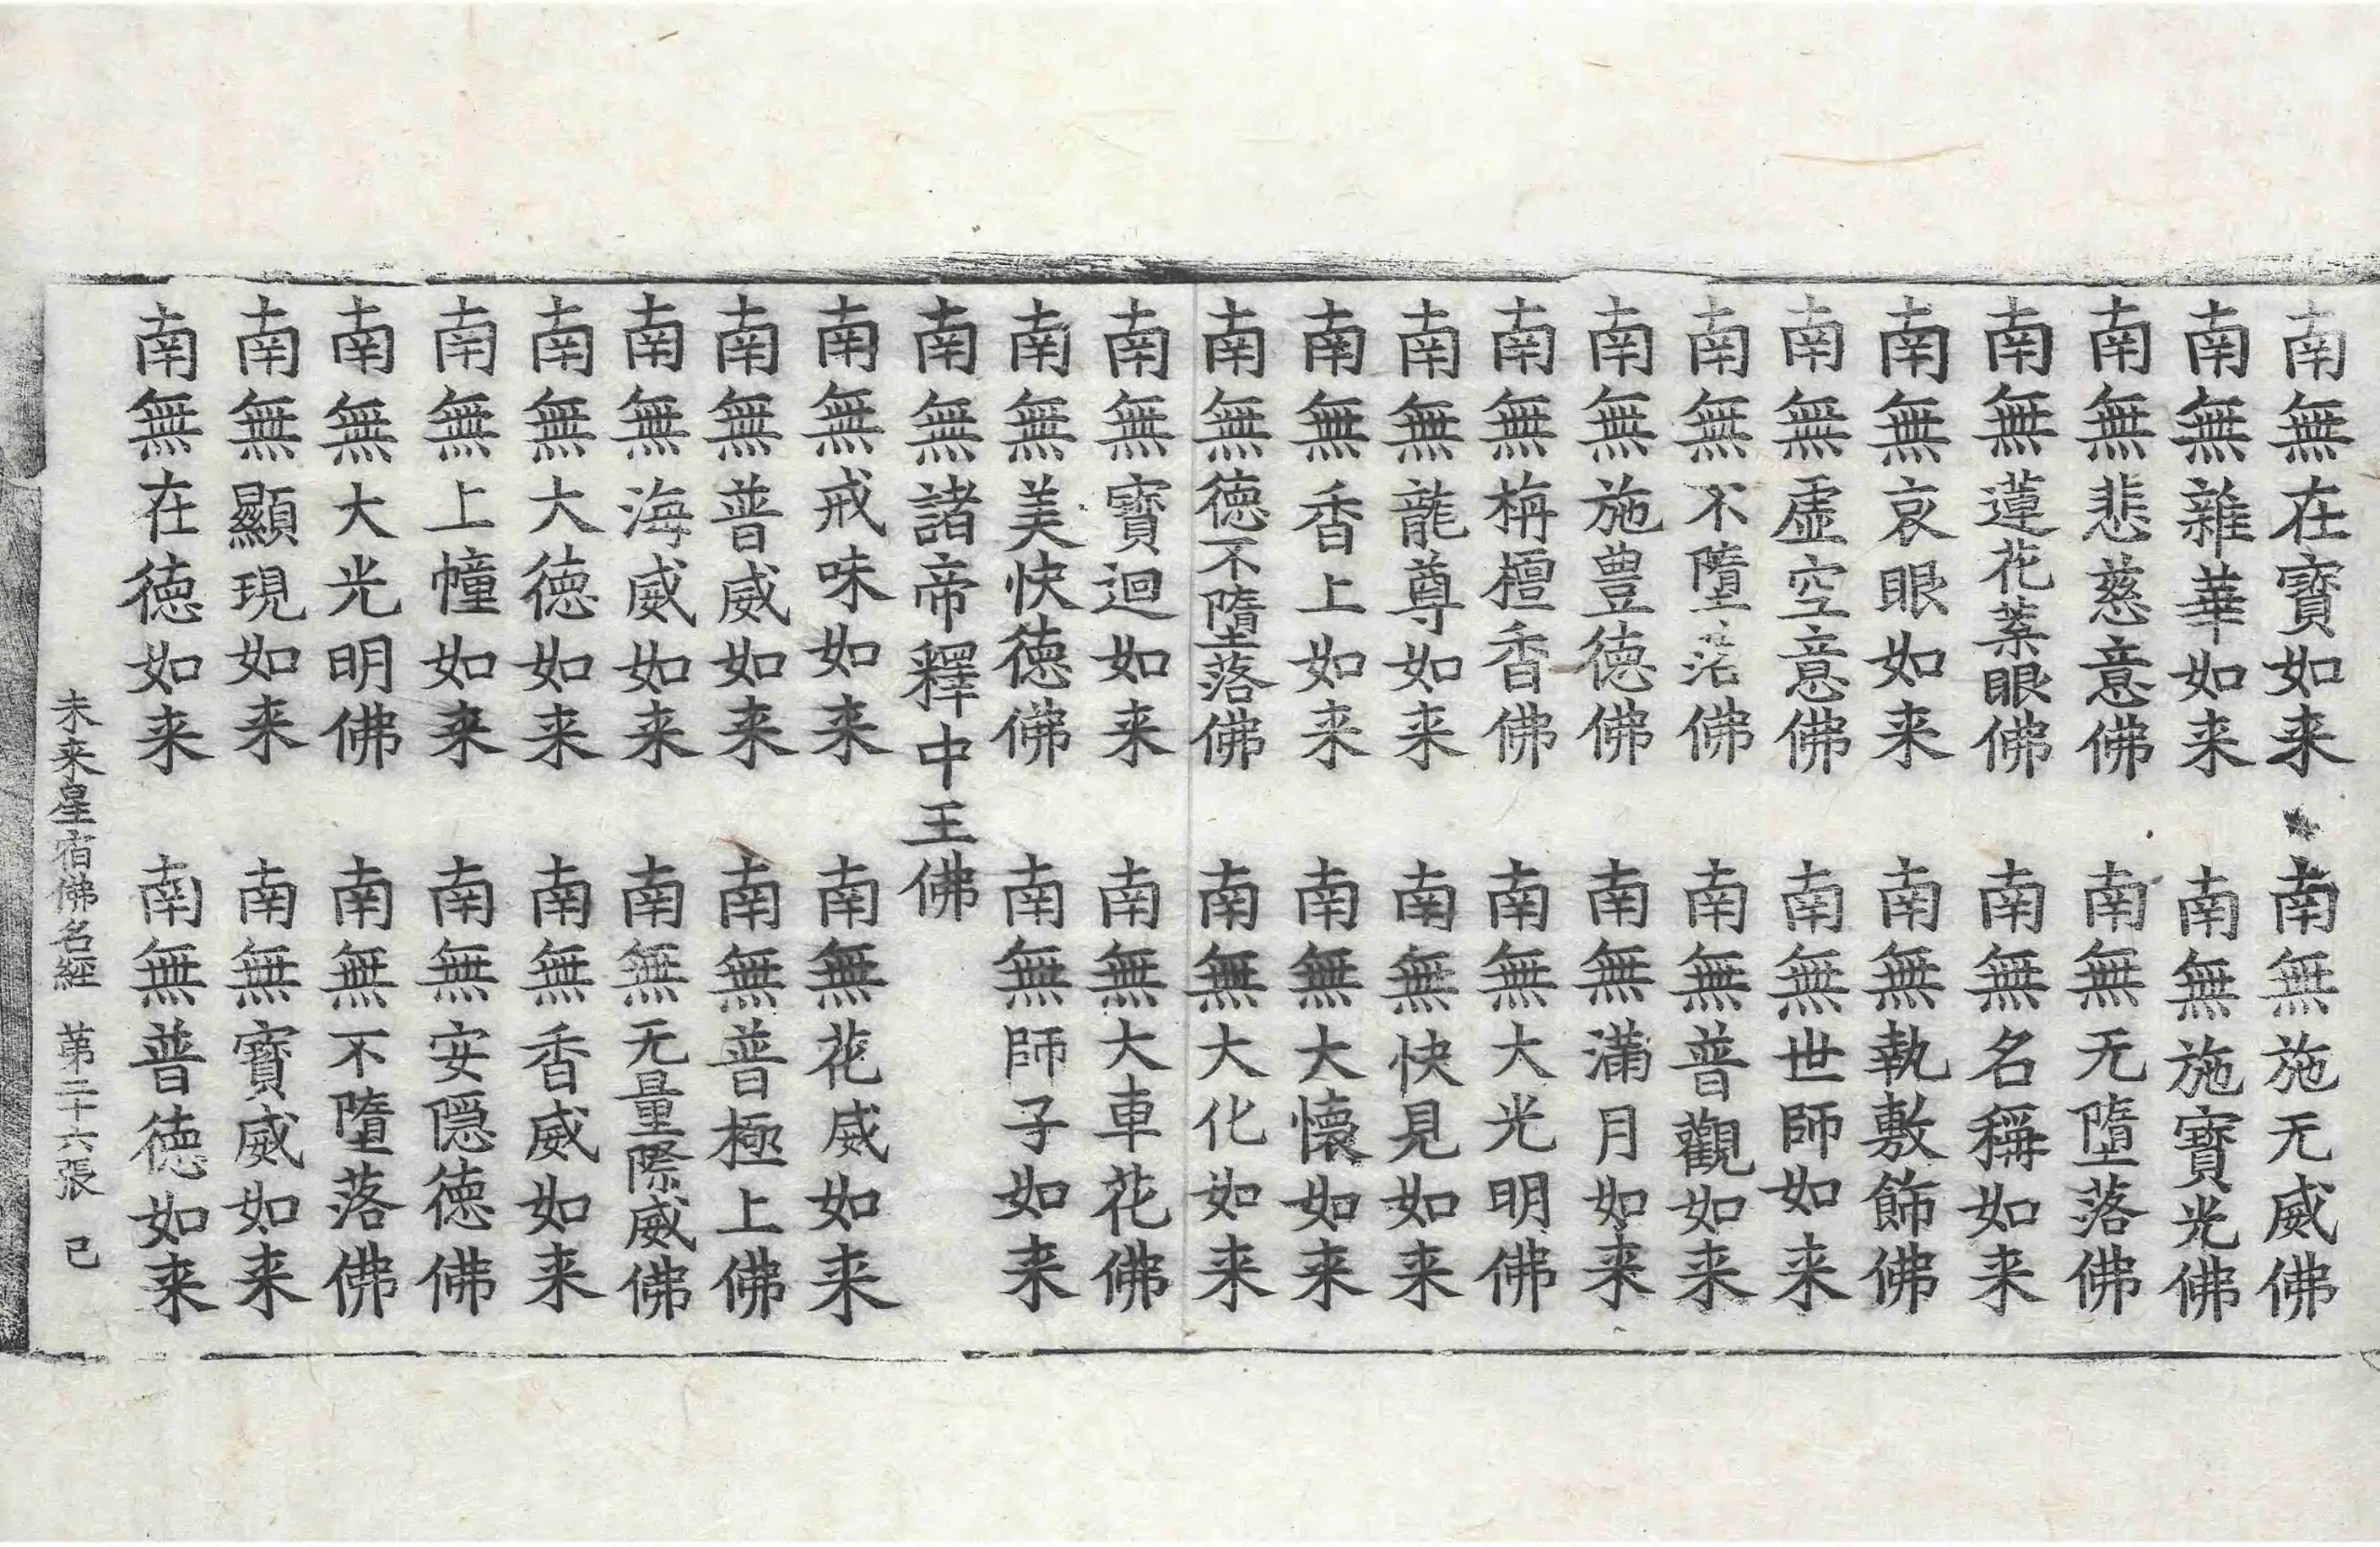 南無在寶如来 南無施无威佛
南無雜華如来 南無施寶光佛
南無悲慈意佛 南無无墮落佛
南無蓮花葉眼佛 南無名稱如来
南無哀眼如来 南無執敷飾佛
南無虛空意佛 南無世師如来
南無不墮落佛 南無普觀如来
南無施豊德佛 南無滿月如来
南無栴檀香佛 南無大光明佛
南無龍尊如来 南無快見如来
南無香上如来 南無大懷如来
南無德不墮落佛 南無大化如来
南無寶迴如来 南無大車花佛
南無美快德佛 南無師子如来
南無諸帝釋中王佛
南無戒味如来 南無花威如来
南無普威如来 南無普極上佛
南無海威如来 南無无量際威佛
南無大德如来 南無香威如来
南無上幢如来 南無安隱德佛
南無大光明佛 南無不墮落佛
南無顯現如来 南無寶威如来
南無在德如来 南無普德如来
未来星宿佛名經 第二十六張 己